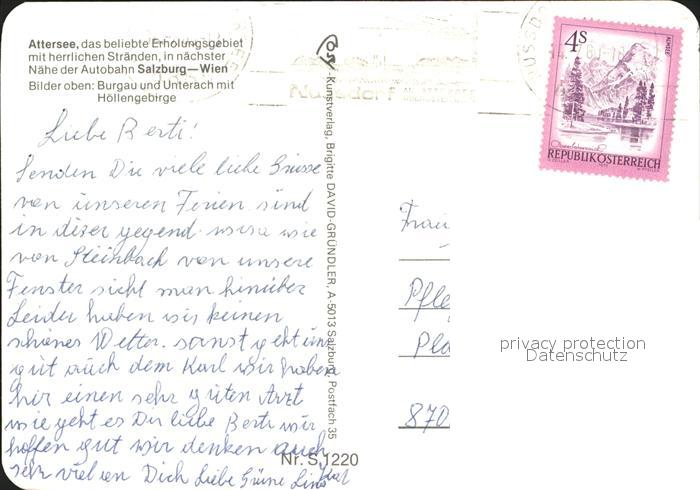 Attersee, das beliebte Erholungsgebiet
mit herrlichen Stränden, in nächster
Nähe der Autobahn Salzburg—Wien
Bilder oben: Burgau und Unterach mit
Höllengebirge
Liebe Berti!
Senden Dir viele liebe Grüsse
von unseren Ferien sind
in diser gegend
von Steinbach von unsere
Fenster sieht man hinüber
Leider haben wir keinen
schönes Wetter. sonst geht uns
gut auch dem Karl wir haben
hir einen sehr guten Arzt
wie geht es Dir liebe Berti wir
hoffen gut wir denken auch
sehr viel an Dich Liebe Grüsse
Kunstverlag, Brigitte DAVID-GRÜNDLER, A-5013 Salzburg, Postfach 35
Nr. S 1220
Nussdorf
4S
REPUBLIK ÖSTERREICH
Frau
Pfle
Pla
870
privacy protection
Datenschutz